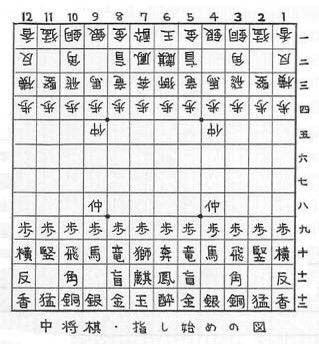 12 11 10 9 8 7 6 5 4 3 2 1
香 猛 銅 銀 金 酔 王 金 銀 銅 猛 香 一
反 角 盲 鳳 麒 盲 角 反 二
横 竪 飛 馬 竜 奔 獅 竜 馬 飛 竪 横 三
歩 歩 歩 歩 歩 歩 歩 歩 歩 歩 歩 歩 四
仲 仲 五
六
七
仲 仲 八
歩 歩 歩 歩 歩 歩 歩 歩 歩 歩 歩 歩 九
横 竪 飛 馬 竜 獅 奔 竜 馬 飛 竪 横 十
反 角 盲 麒 鳳 盲 角 反 十一
香 猛 銅 銀 金 玉 酔 金 銀 銅 猛 香 十二
中将棋・指し始めの図